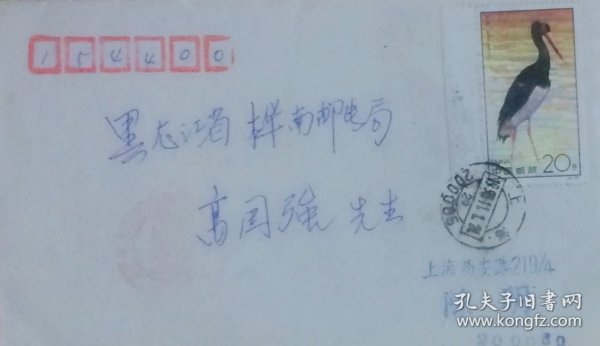 154400
中国邮政 20分
黑龙江省 桦南邮电局
高国强 先生
上海
200085
上海西安路219/4
200080
孔夫子旧书网
www.kongfz.com